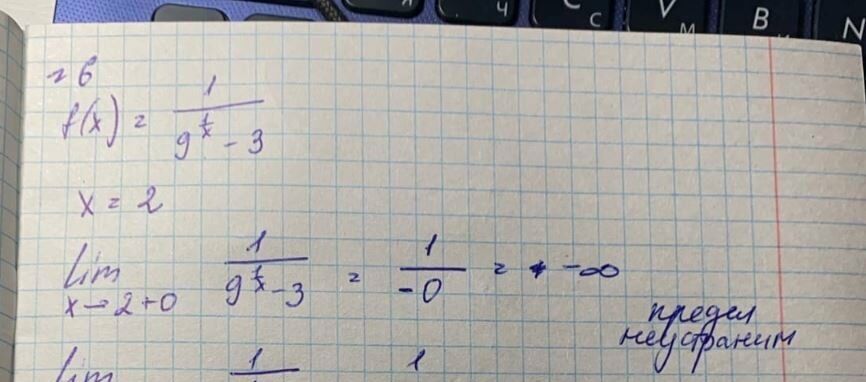 я
ч
C с
V м
B и
N
№6
f(x) = 1 / (9^(1/x) - 3)
x = 2
lim x→2+0 1 / (9^(1/x) - 3) = 1 / -0 = -∞
предел
неустраним
lim 1 1